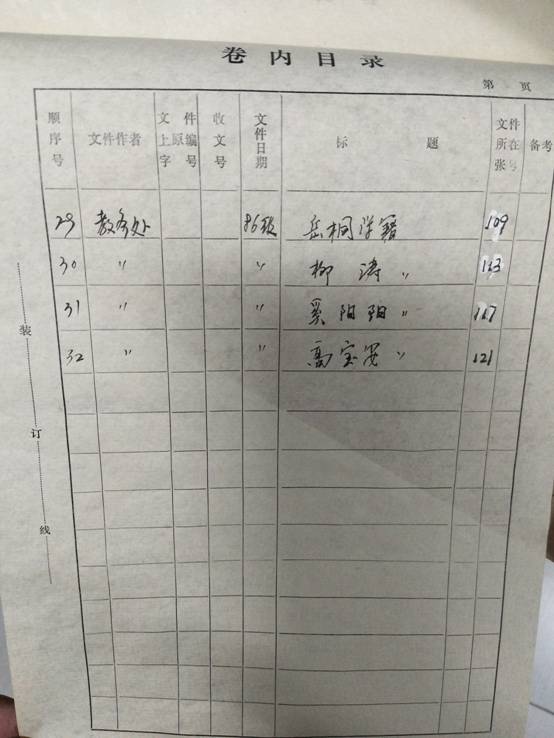 卷内目录
第 页
顺序号 文件作者 文件上原编字号 收文号 文件日期 标题 文件所在张号 备考
29 教务处 86级 岳桐学籍 109
30 〃 〃 柳涛 〃 113
31 〃 〃 奚阳阳 〃 117
32 〃 〃 高宝罗 〃 121
装订线